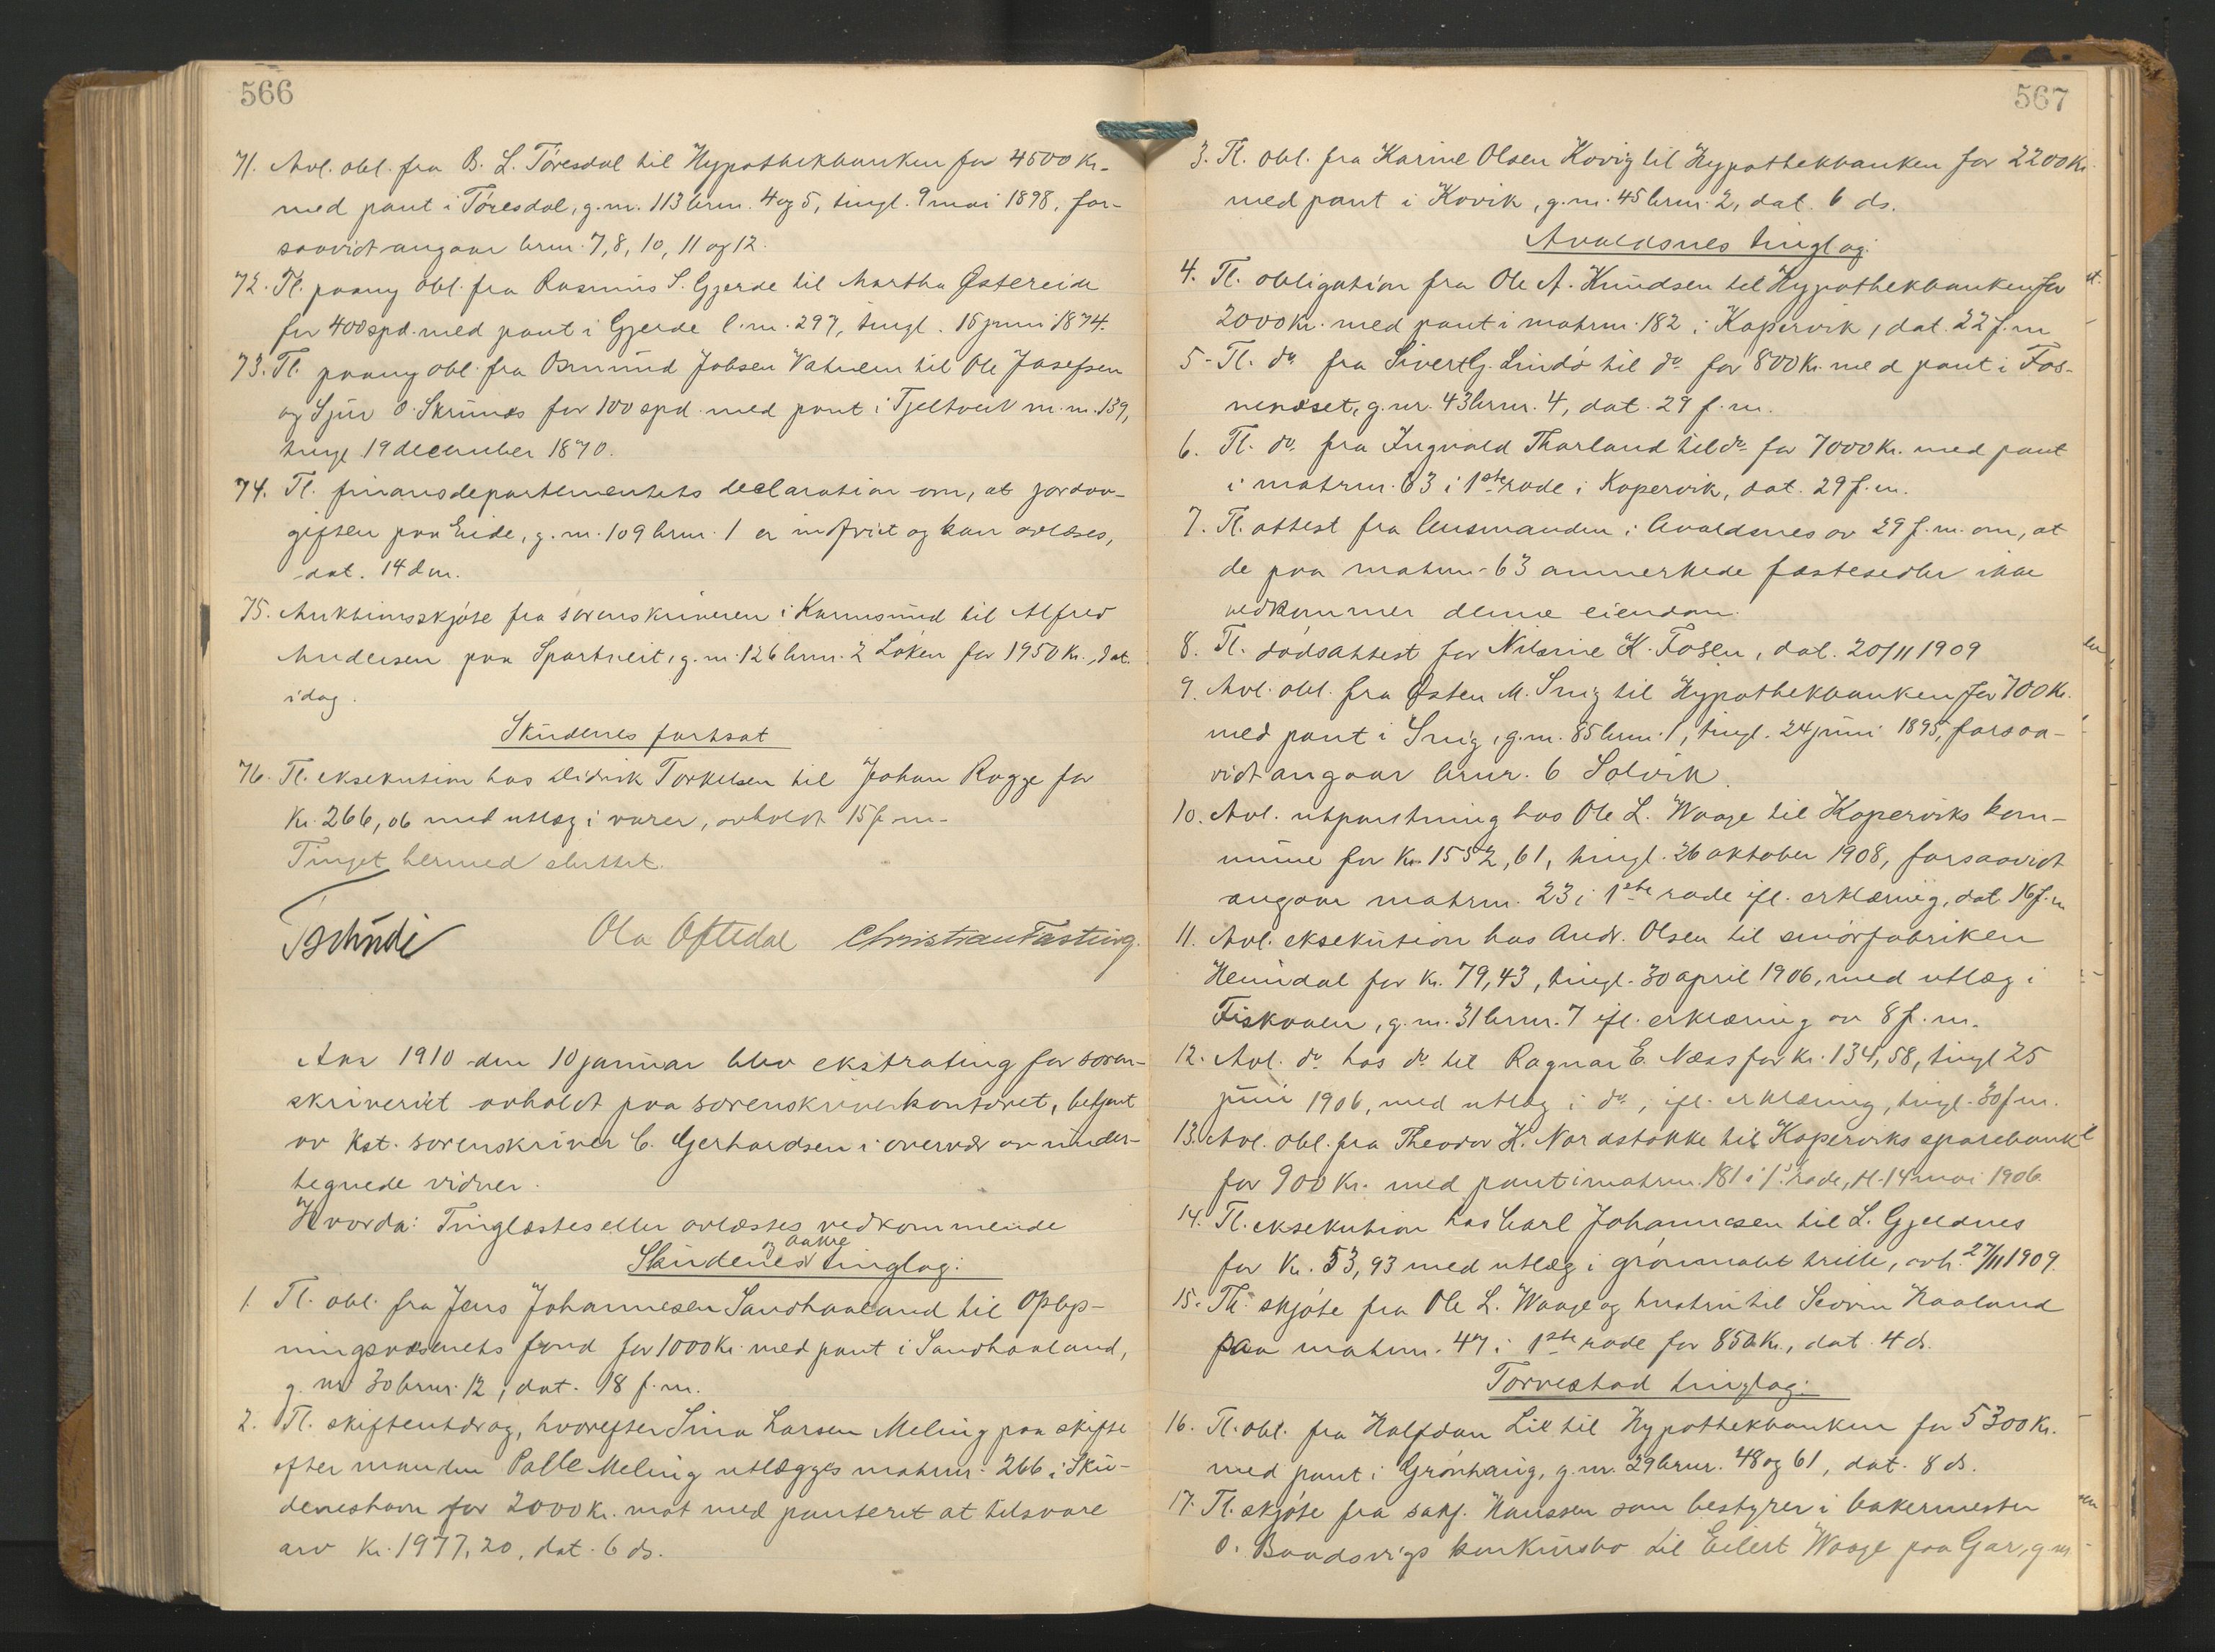 566
71. Avl. obl. fra B. L. Tøresdal til Hypothekbanken for 4500 Kr.
med pant i Tøresdal, g.nr. 113 brnr. 4 og 5, tingl. 9 mai 1898, for-
saavidt angaar brnr. 7, 8, 10, 11 og 12.
72. Tl. paany obl. fra Rasmus S. Gjerde til Martha Østereide
for 400 spd. med pant i Gjerde l.nr. 297, tingl. 15 juni 1874.
73. Tl. paany obl. fra Osmund Jobsen Vatnem til Ole Josefsen
og Sjur O. Skrunes for 100 spd. med pant i Tjeltveit m.nr. 139,
tingl. 19 december 1870.
74. Tl. finansdepartementets declaration om, at jordav-
giften paa Eide, g.nr. 109 brnr. 1 er indfriet og kan avlæses,
dat. 14 d.m.
75. Auktionsskjøte fra sorenskriveren i Karmsund til Alfred
Andersen paa Spartveit, g.nr. 126 brnr. 2 Løken for 1950 Kr., dat.
idag.
Skudenes fortsat
76. Tl. eksekution hos Didrik Torkelsen til Johan Rogge for
Kr. 266,06 med utlæg i varer, avholdt 15 f.m.
Tinget hermed sluttet.
Tschudi Ola Oftedal Christian Fasting.
Aar 1910 den 10 januar blev ekstrating for soren-
skriveriet avholdt paa sorenskriverkontoret, betjent
av Kst. sorenskriver C. Gerhardsen i overvær av under-
tegnede vidner.
Hvorda: Tinglæstes eller avlæstes vedkommende
og Aakre
Skudenes tinglag:
1. Tl. obl. fra Jens Johannesen Sandhaaland til Oplys-
ningsvæsenets fond for 1000 Kr. med pant i Sandhaaland,
g.nr. 30 brnr. 12, dat. 18 f.m.
2. Tl. skifteutdrag, hvorefter Sina Larsen Meling paa skifte
efter manden Palle Meling utlægges matrnr. 266 i Sku-
deneshavn for 2000 Kr. mot med panteret at tilsvare
arv Kr. 1977,20, dat. 6 ds.
567
3. Tl. obl. fra Karine Olsen Kovig til Hypothekbanken for 2200 Kr.
med pant i Kovik, g.nr. 45 brnr. 2, dat. 6 ds.
Avaldsnes tinglag:
4. Tl. obligation fra Ole A. Knudsen til Hypothekbanken for
2000 Kr. med pant i matrnr. 182 i Kopervik, dat. 22 f.m
5. Tl. do. fra Sivert G. Lindø til do. for 800 Kr. med pant i Fos-
neneset, g.nr. 43 brnr. 4, dat. 29 f.m.
6. Tl. do. fra Ingvald Thorland til do. for 7000 Kr. med pant
i matrnr. 63 i 1ste rode i Kopervik, dat. 29 f.m.
7. Tl. attest fra lensmanden i Avaldsnes av 29 f.m. om, at
de paa matrnr. 63 anmerkede fæstesedler ikke
vedkommer denne eiendom.
8. Tl. dødsattest for Nilsine K. Fosen, dat. 20/11 1909
9. Avl. obl. fra Østen M. Snig til Hypothekbanken for 700 Kr.
med pant i Snig, g.nr. 85 brnr. 1, tingl. 24 juni 1895, forsaa-
vidt angaar brnr. 6 Solvik.
10. Avl. utpantning hos Ole L. Waage til Koperviks kom-
mune for Kr. 1552,61, tingl. 26 oktober 1908, forsaavidt
angaar matrnr. 23 i 1ste rode ifl. erklæring, dat. 16 f.m
11. Avl. eksekution hos Andr. Olsen til smørfabriken
Heimdal for Kr. 79,43, tingl. 30 april 1906, med utlæg i
Fiskaaen, g.nr. 31 brnr. 7 ifl. erklæring av 8 f.m.
12. Avl. do. hos do. til Ragnar E. Næss for Kr. 134,58, tingl. 25
juni 1906, med utlæg i do., ifl. erklæring, tingl. 30 f.m.
13. Avl. obl. fra Theodor K. Nordstokke til Koperviks sparebank
for 900 Kr. med pant i matrnr. 181 i 1. rode, tl. 14 mai 1906.
14. Tl. eksekution hos Carl Johannesen til L. Gjeldnes
for Kr. 53,93 med utlæg i grønmalt trille, avh. 27/11 1909.
15. Tl. skjøte fra Ole L. Waage og hustru til Severin Haaland
paa matrnr. 47 i 1ste rode for 850 Kr., dat. 4 ds.
Torvestad tinglag:
16. Tl. obl. fra Halfdan Lie til Hypothekbanken for 5300 Kr.
med pant i Grønhaug, g.nr. 29 brnr. 48 og 61, dat. 8 ds.
17. Tl. skjøte fra sakf. Hanssen som bestyrer i bakermester
O. Baadsvigs konkursbo til Eilert Waage paa Gar, g.nr.